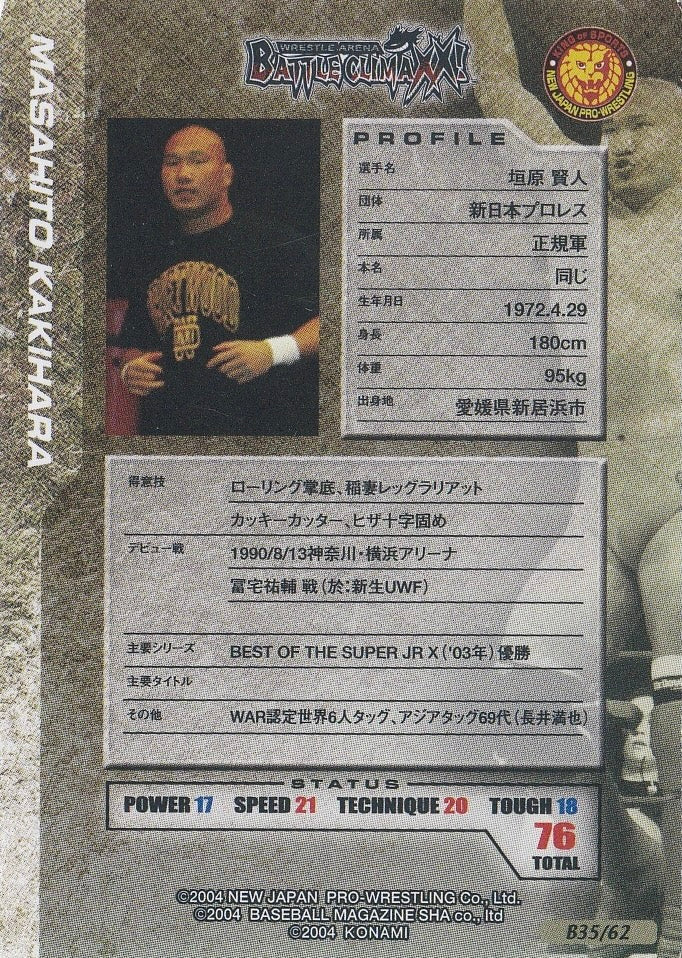 WRESTLE ARENA
BATTLE CLIMAXX!
KING OF SPORTS
NEW JAPAN PRO-WRESTLING
MASAHITO KAKIHARA
PROFILE
選手名 垣原 賢人
団体 新日本プロレス
所属 正規軍
本名 同じ
生年月日 1972.4.29
身長 180cm
体重 95kg
出身地 愛媛県新居浜市
得意技 ローリング掌底、稲妻レッグラリアット
カッキーカッター、ヒザ十字固め
デビュー戦 1990/8/13神奈川・横浜アリーナ
冨宅祐輔 戦(於:新生UWF)
主要シリーズ BEST OF THE SUPER JR X('03年)優勝
主要タイトル
その他 WAR認定世界6人タッグ、アジアタッグ69代(長井満也)
STATUS
POWER 17 SPEED 21 TECHNIQUE 20 TOUGH 18
76
TOTAL
©2004 NEW JAPAN PRO-WRESTLING Co., Ltd.
©2004 BASEBALL MAGAZINE SHA co., ltd
©2004 KONAMI
B35/62